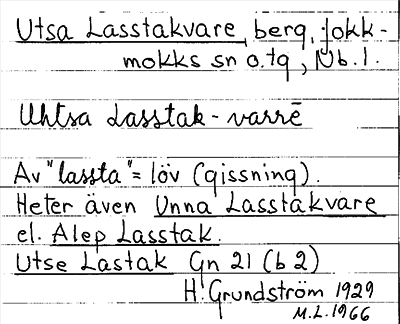 Utsa Lasstakvare, berg, jokk-
mokks sn o.tg, Nb.l.
Uhtsa Lasstak-varrē
Av "lassta" = löv (gissning).
Heter även Unna Lasstakvare
el. Alep Lasstak.
Utse Lastak Gn 21 (b 2)
H. Grundström 1929
M.L. 1966